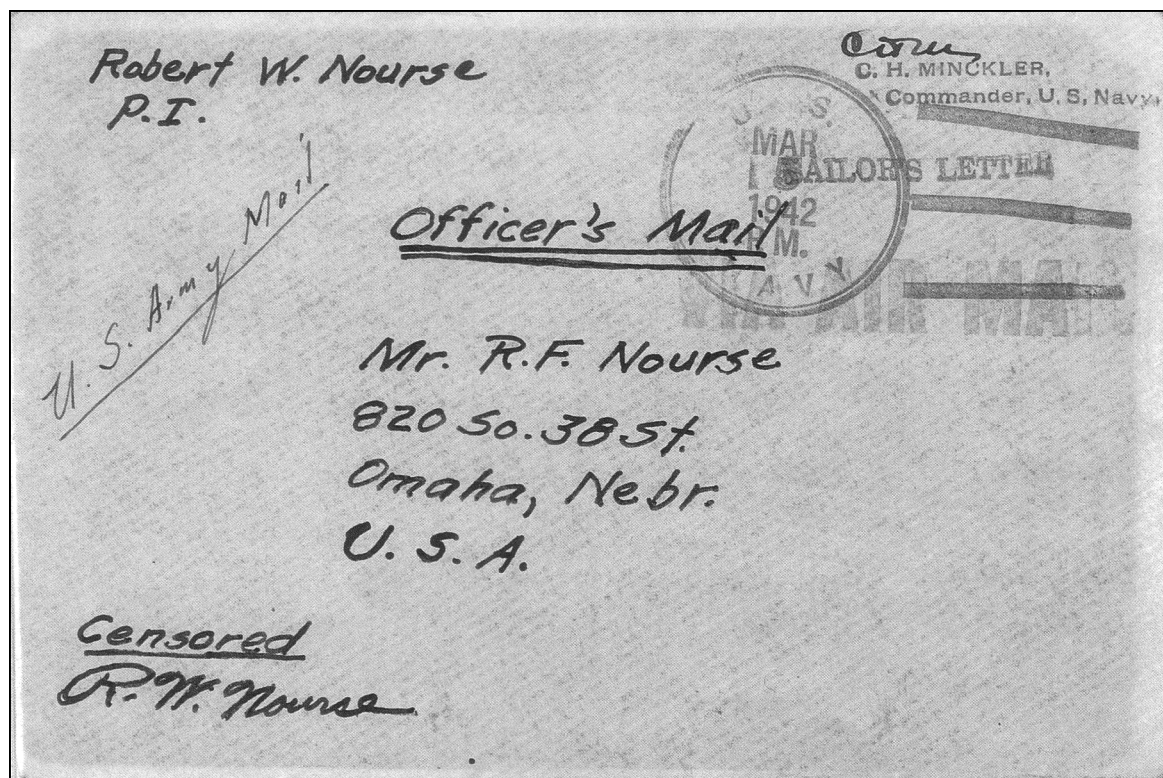 Robert W. Nourse
P.I.
C. H. MINCKLER,
Commander, U. S, Navy.
U. S.
MAR
1942
M.
NAVY
SAILOR'S LETTER
U. S. Army Mail
Officer's Mail
AIR MAIL
Mr. R.F. Nourse
820 So. 38 St.
Omaha, Nebr.
U. S. A.
Censored
R. W. Nourse